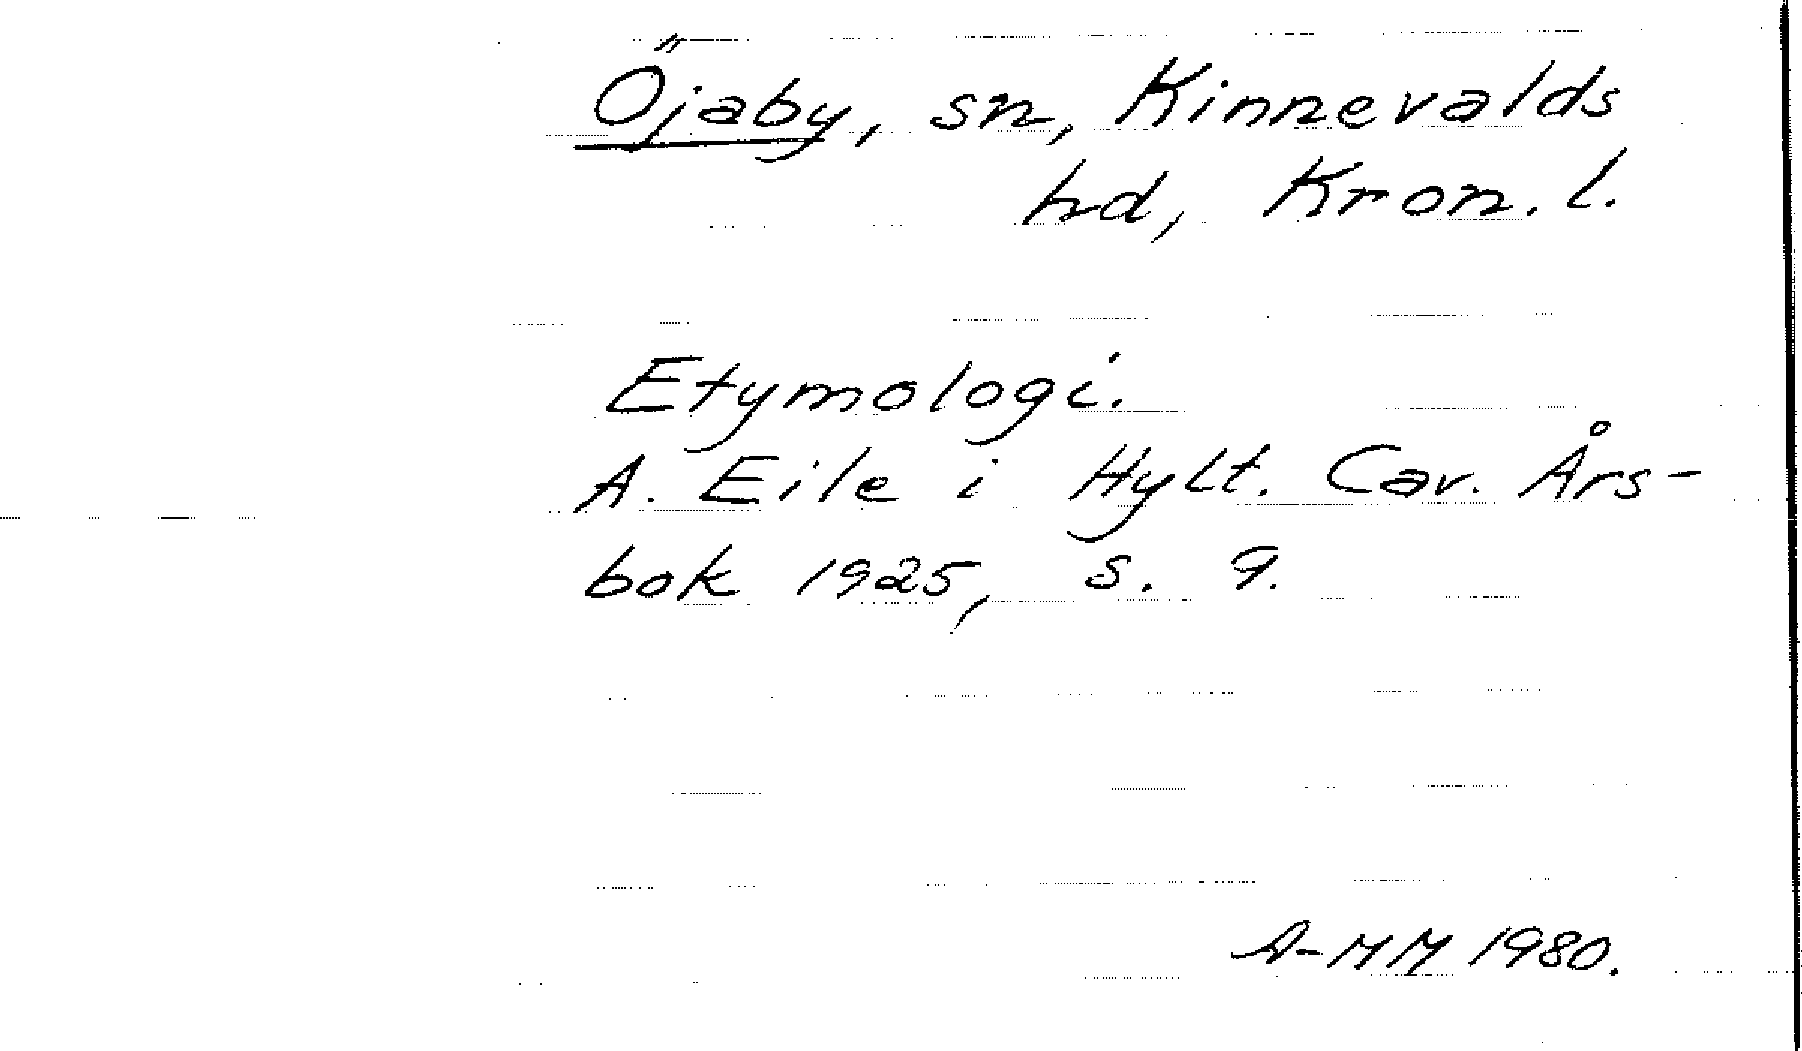 Öjaby, sn, Kinnevalds
hd, Kron. l.
Etymologi.
A. Eile i Hylt. Cav. Års-
bok 1925, s. 9.
A-MM 1980.